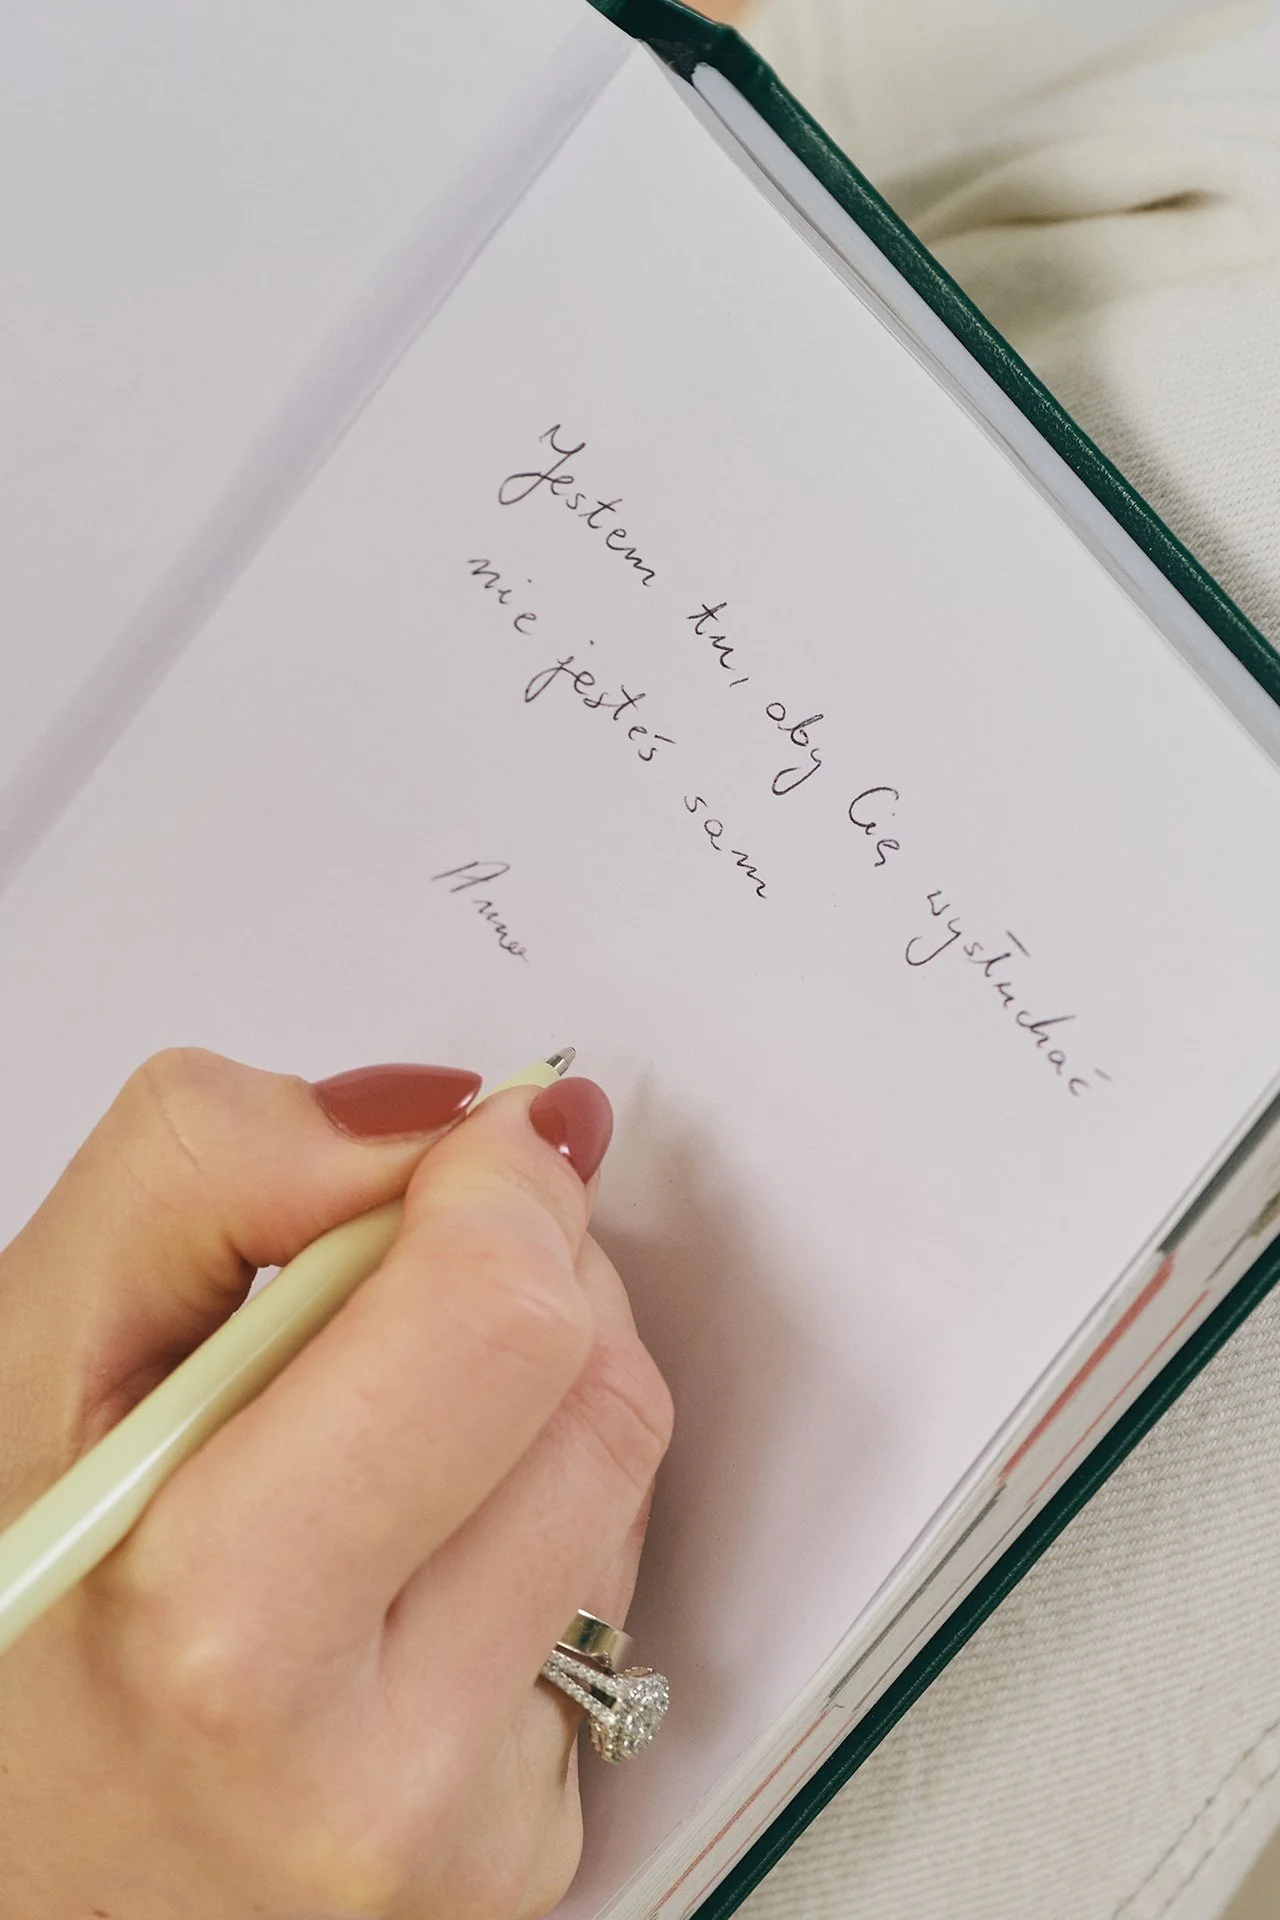 Jestem tu, aby Cię wysłuchać
nie jesteś sam
Anna